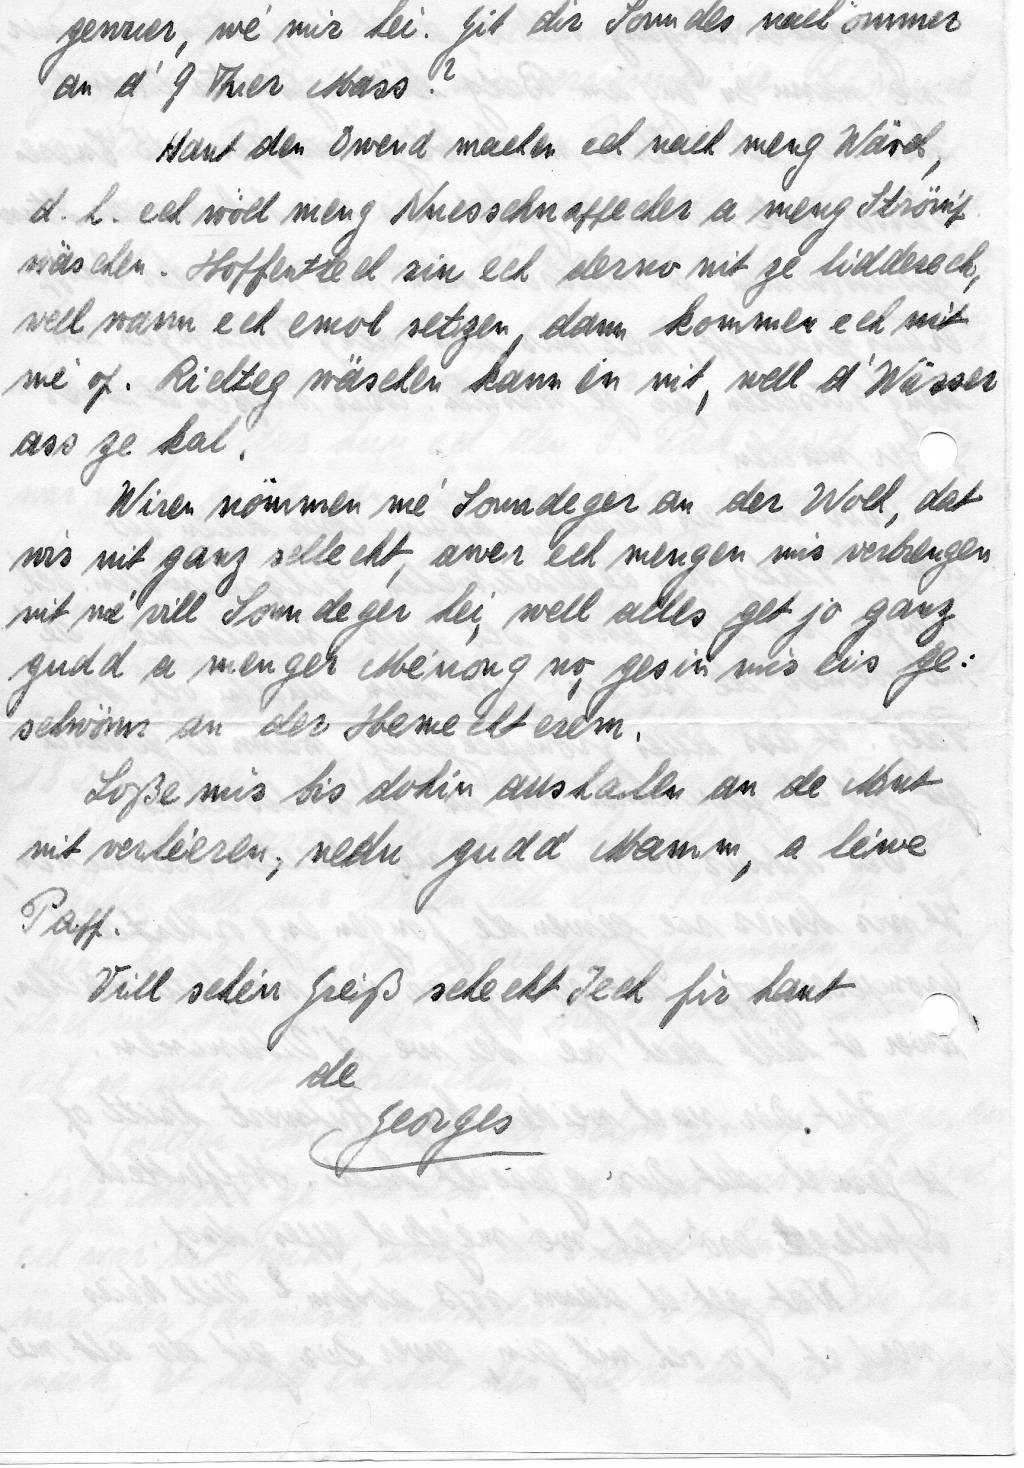 genuer, wé mir hei. Git dir Sonndes nach ömmer
an d' 9 Auer Mass?
Haut den Owend machen ech nach meng Wäsch,
d. h. ech wöll meng Nuesschnappecher a meng Strömp
wäschen. Hoffentlech sin ech derno nit ze lidderech,
well wann ech emol setzen, dann kommen ech nit
mé of. Richteg wäschen kann én nit, well d'Wässer
ass ze kal.
Wiren nömmen mé Sonndeger an der Woch, dat
wir nit ganz schlecht, awer ech mengen mir verbrengen
nit mé vill Sonndeger hei, well alles get jo ganz
gudd a menger Ménong no, gesin mir eis ge:
schwönn an der Hemecht erëm.
Loße mir bis dohin aushalen an de Mut
nit verléieren, nedu gudd Mamm, a léiwe
Papp.
Vill schéin Gréiß schecht Iech fir haut
de
Georges